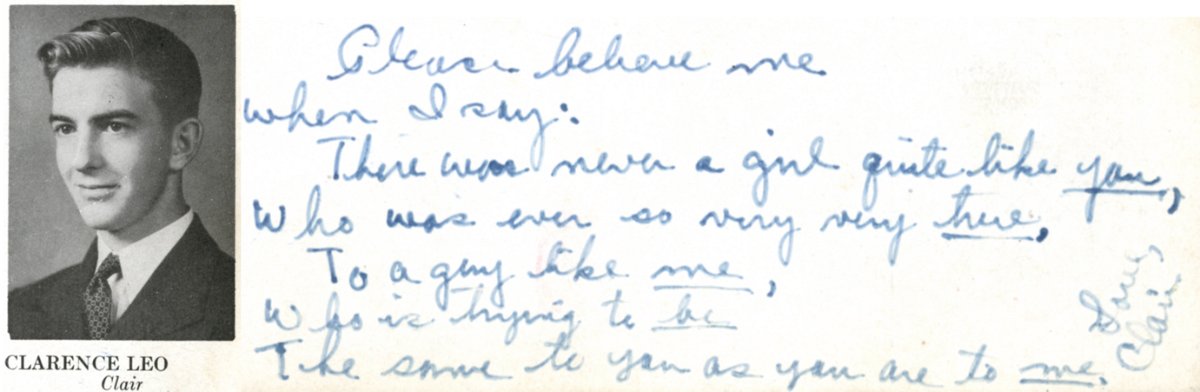 CLARENCE LEO
Clair
Please believe me
when I say:
There was never a girl quite like you,
Who was ever so very very true,
To a guy like me,
Who is trying to be
The same to you as you are to me.
Love
Clair